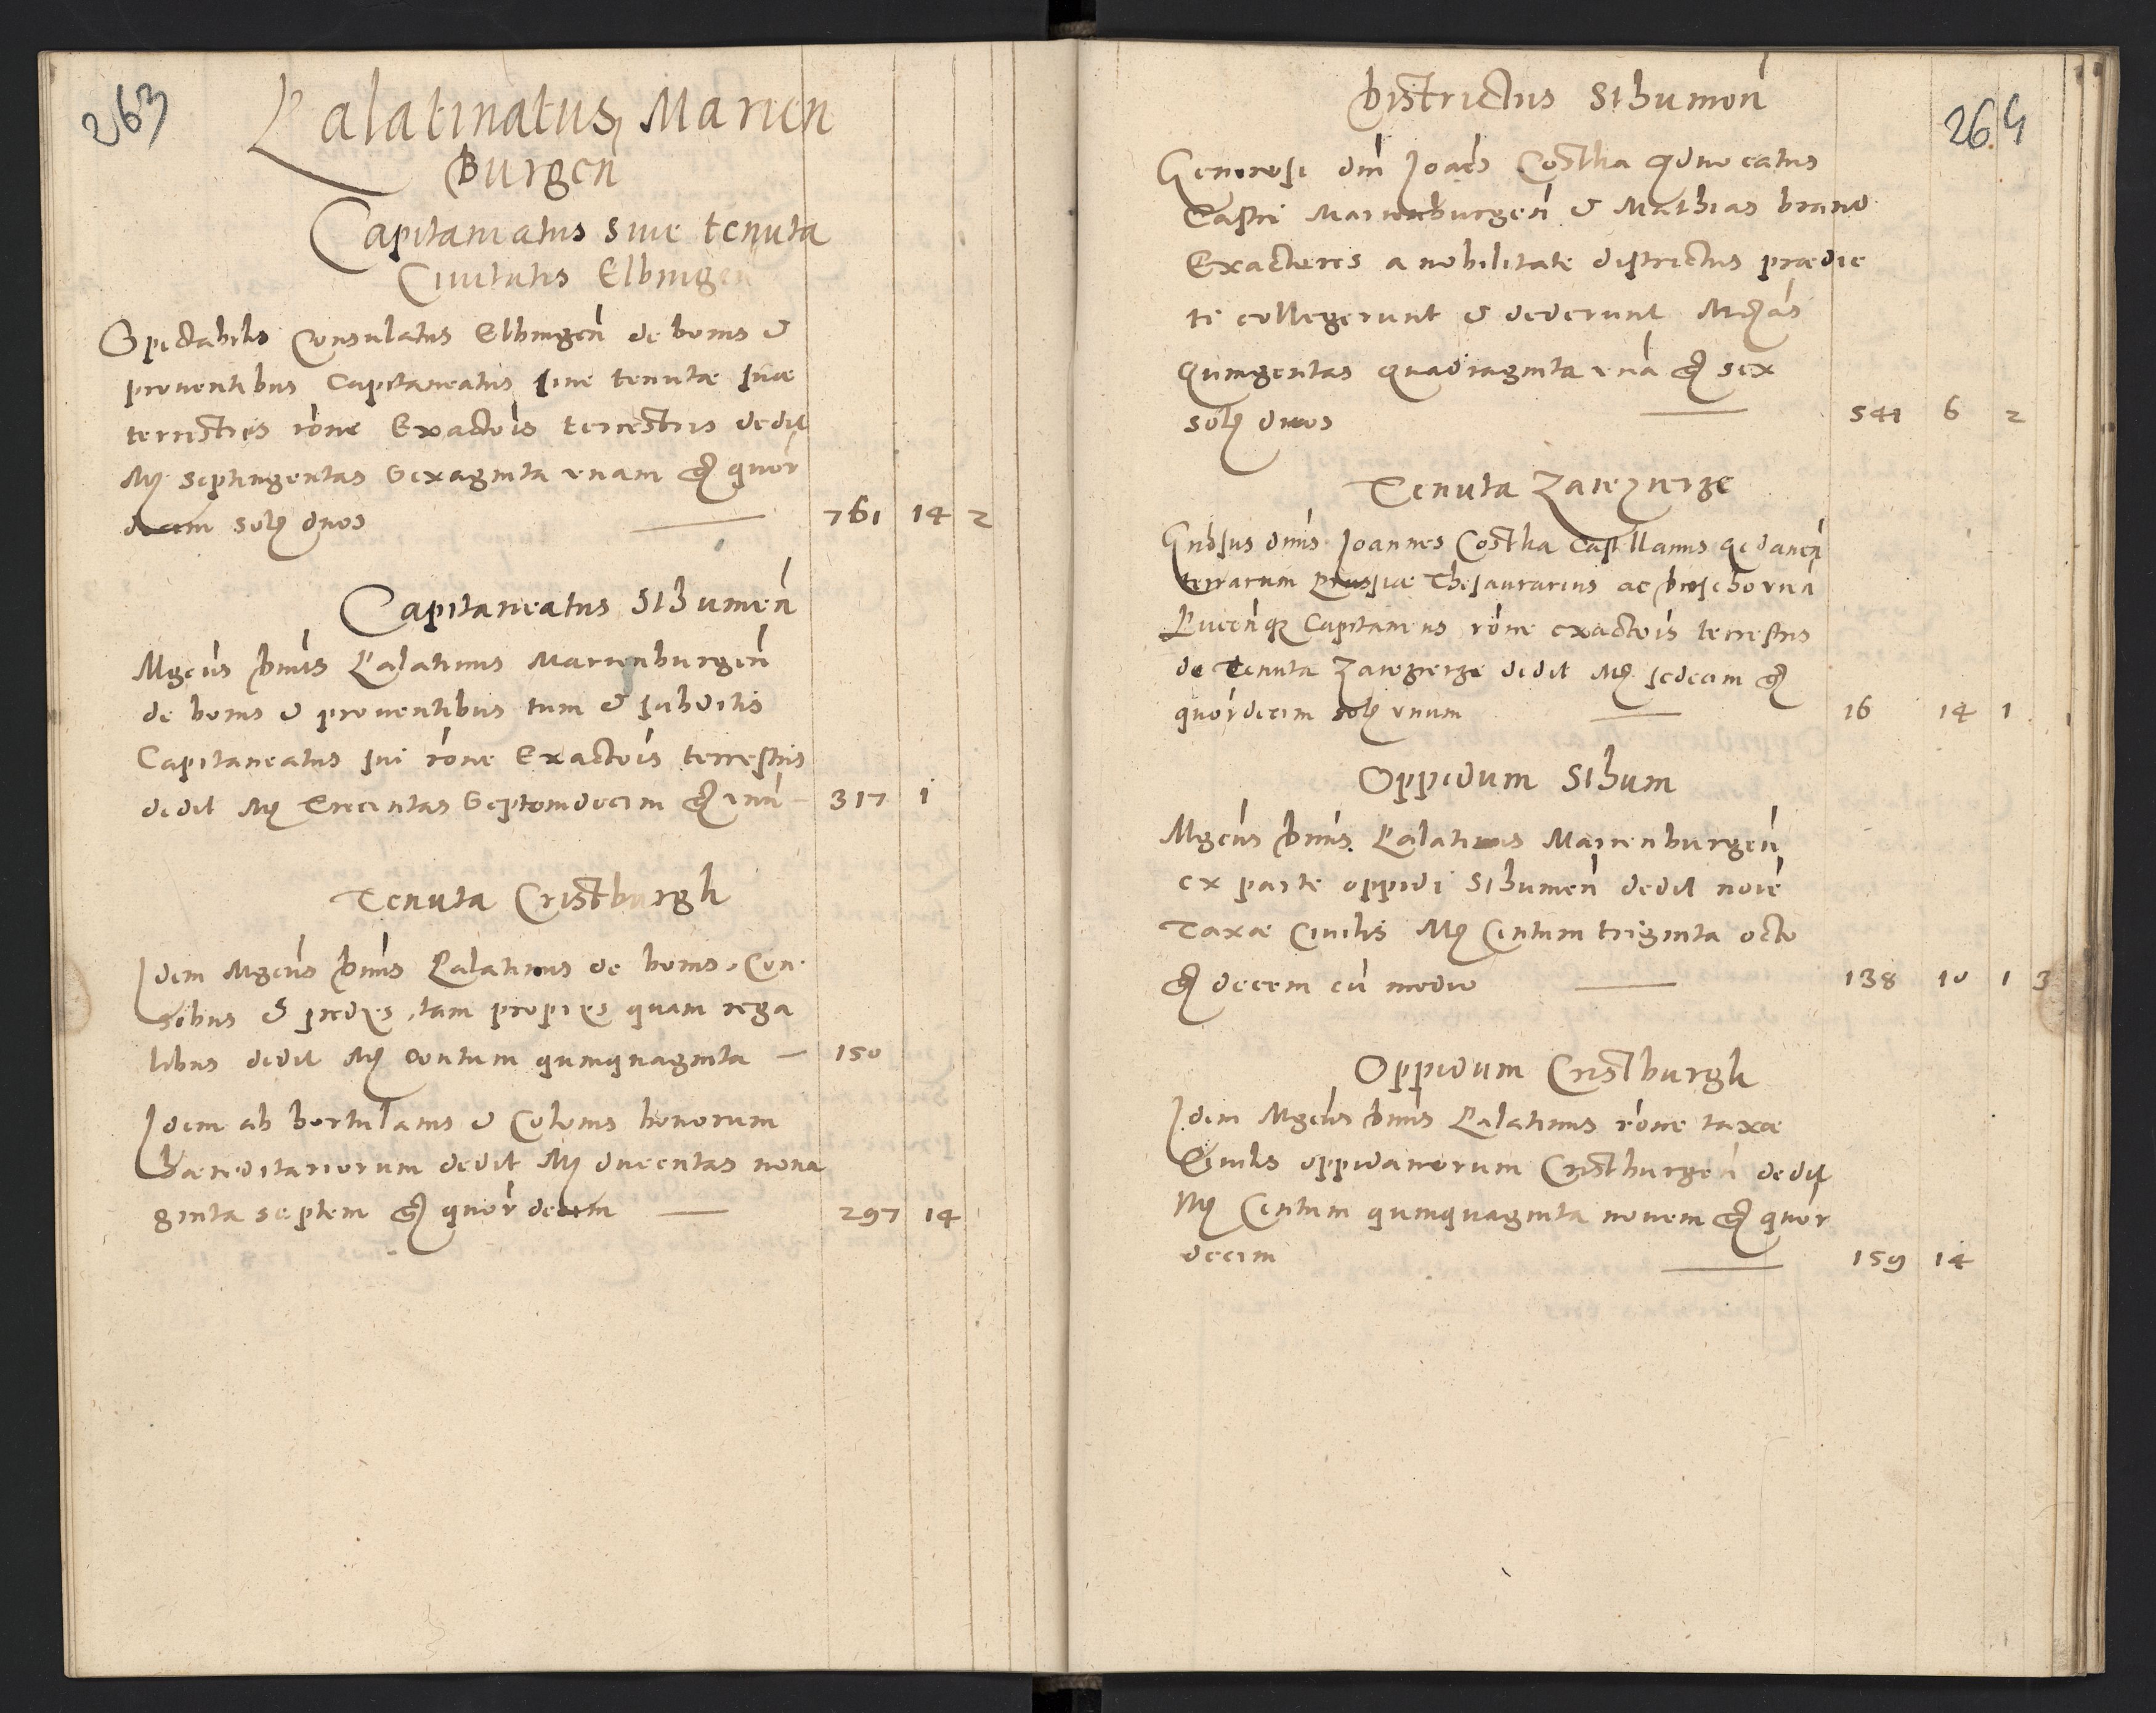 263
Palatinatus Marien
Burgen
Capitaneatus siue tenuta
Ciuitatis Elbingen
Spectabilis Consulatus Elbingeń de bonis &
prouentibus Capitaneatus siue tenutæ suæ
terrestris róne Exactóis terrestris dedit
Mʒ septingentas Sexaginta vnam gʒ quór
decim solʒ duos 761 14 2
Capitaneatus Sthumeń
Mgcus Dnús Palatinus Marienburgeń
de bonis & prouentibus tum & subditis
Capitaneatus sui róne Exactóis terrestris
dedit Mʒ Trecintas Septemdecim gʒ vnú 317 1
Tenuta Cristburgh
Idem Mgcus Dnús Palatinus de bonis, Cen-
sibus & tam quam rega
libus dedit Mʒ Centum quinquaginta 150
Idem ab hortulanis & Colonis bonorum
hæreditariorum dedit Mʒ ducentas nona
ginta septem gʒ quór decim 297 14
264
Districtus Sthumeń
Generosi dńi Joaes Costka Aduocatus
Castri Marienburgeń & Mathias brand
Exactores a nobilitate districtus prædic
ti collegerunt & dederunt Mʒas
Quingentas quadraginta vná gʒ sex
solʒ duos 541 6 2
Tenuta Zaiezierze
Gnósus dnús Joannes Costka Castellanus Gedaneń
terrarum Prussiæ Thesaurarius ac
Puceńqʒ Capitaneus róne exactóis terrestris
de Tenuta Zaiezierze dedit Mʒ sedecim gʒ
quórdecim solʒ vnum 16 14 1
Oppidum Sthum
Mgcus Dnús Palatinus Marienburgeń
ex parte oppidi Sthumeń dedit noíe
Taxæ Ciuilis Mʒ Centum triginta octo
gʒ decem cú medio 138 10 1 3
Oppidum Cristburgh
Idem Mgcus Dnús Palatinus róne taxæ
Ciuilis oppidanorum Cristburgeń dedit
Mʒ Centum quinquaginta nouem gʒ quór
decim 159 14